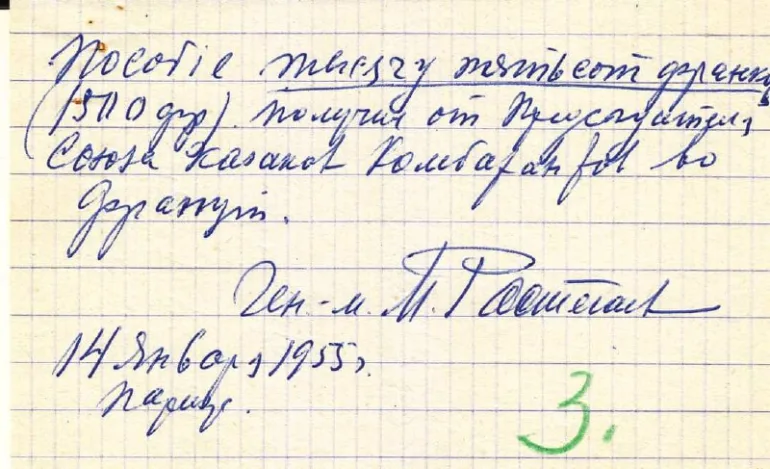 Пособіе тысячу пятьсот франков
(1500 фр). получил от Председателя
Союза Казаков Комбатантов во
Франции.
Ген.-м. М.
14 Января 1955 г.
Париж.
3.